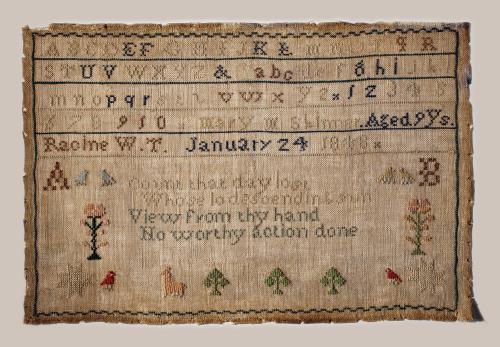 A B C D E F G H I J K L M N O P Q R
S T U V W X Y Z & a b c d e f g h i j k l
m n o p q r s t u v w x y z x 1 2 3 4 5
6 7 8 9 10 mary Aged 9 Ys.
Racine W.T. January 24
A B
Count that day lost
Whose descending sun
View from thy hand
No worthy action done